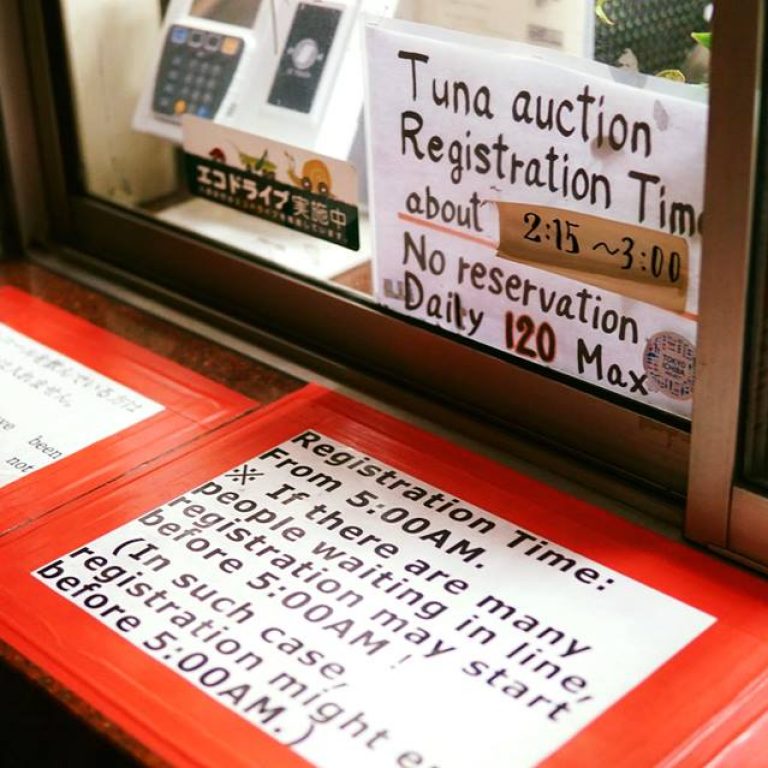 Tuna auction
Registration Tim
about 2:15 ~3:00
No reservation
Daily 120 Max
エコドライブ実施中
Registration Time:
From 5:00AM.
※ If there are many
people waiting in line,
registration may start
before 5:00AM !
(In such case,
registration might e
before 5:00AM.)
been
not